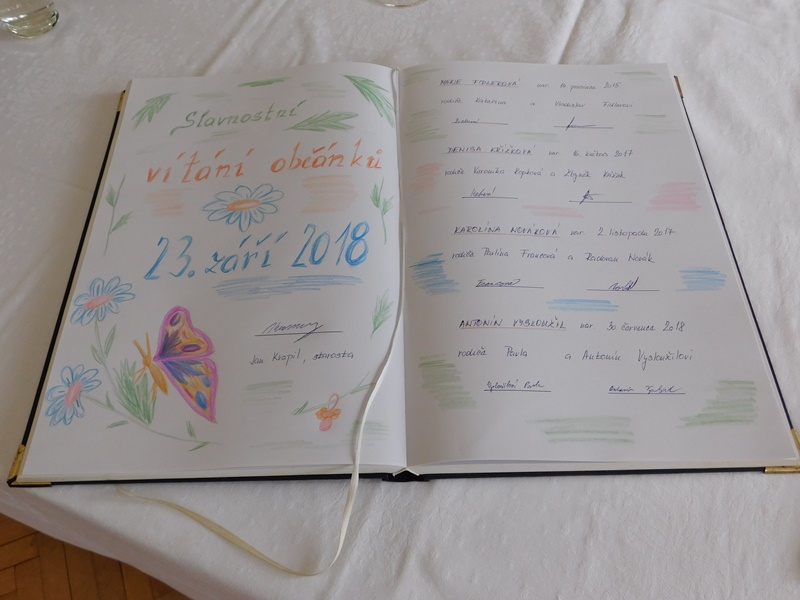 Slavnostní
vítání občánků
23. září 2018
Jan Kropil, starosta
MARIE FIDLEROVÁ nar. prosince
rodiče a Fidlerovi
DENISA KŘÍŽKOVÁ nar. 16. května 2017
rodiče Veronika Kopková a Zbyněk Křížek
KAROLÍNA NOVÁKOVÁ nar. 2. listopadu 2017
rodiče Pavlína Francová a Radovan Novák
Francová Novák
ANTONÍN VYSLOUŽIL nar. 30. července 2018
rodiče Pavla a Antonín Vysloužilovi